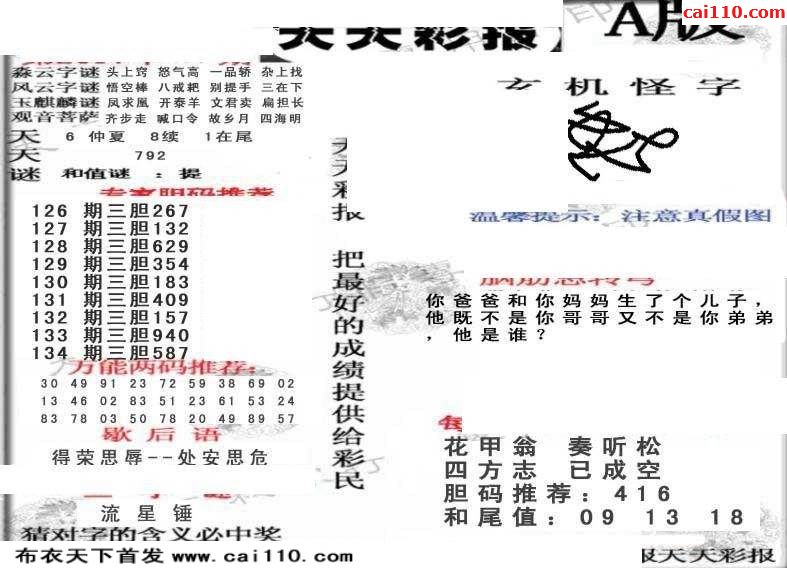 cai110.com
A版
天天彩报
玄机怪字
淼云字谜 头上窍 怒气高 一品轿 杂上找
风云字谜 悟空棒 八戒耙 别提手 三在下
玉麒麟谜 凤求凰 开泰羊 文君卖 扁担长
观音菩萨 齐步走 喊口令 故乡月 四海明
天 6 仲夏 8续 1在尾
天 792
谜 和值谜 : 提
专家胆码推荐
126 期三胆267
127 期三胆132
128 期三胆629
129 期三胆354
130 期三胆183
131 期三胆409
132 期三胆157
133 期三胆940
134 期三胆587
万能两码推荐:
30 49 91 23 72 59 38 69 02
13 46 02 83 51 23 61 53 24
83 78 03 50 78 20 49 89 57
歇后语
得荣思辱--处安思危
流星锤
猜对字的含义必中奖
布衣天下首发 www.cai110.com
天天彩报 把最好的成绩提供给彩民
温馨提示: 注意真假图
脑筋急转弯
你爸爸和你妈妈生了个儿子，
他既不是你哥哥又不是你弟弟
，他是谁？
花甲翁 奏听松
四方志 已成空
胆码推荐: 416
和尾值: 09 13 18
天天彩报